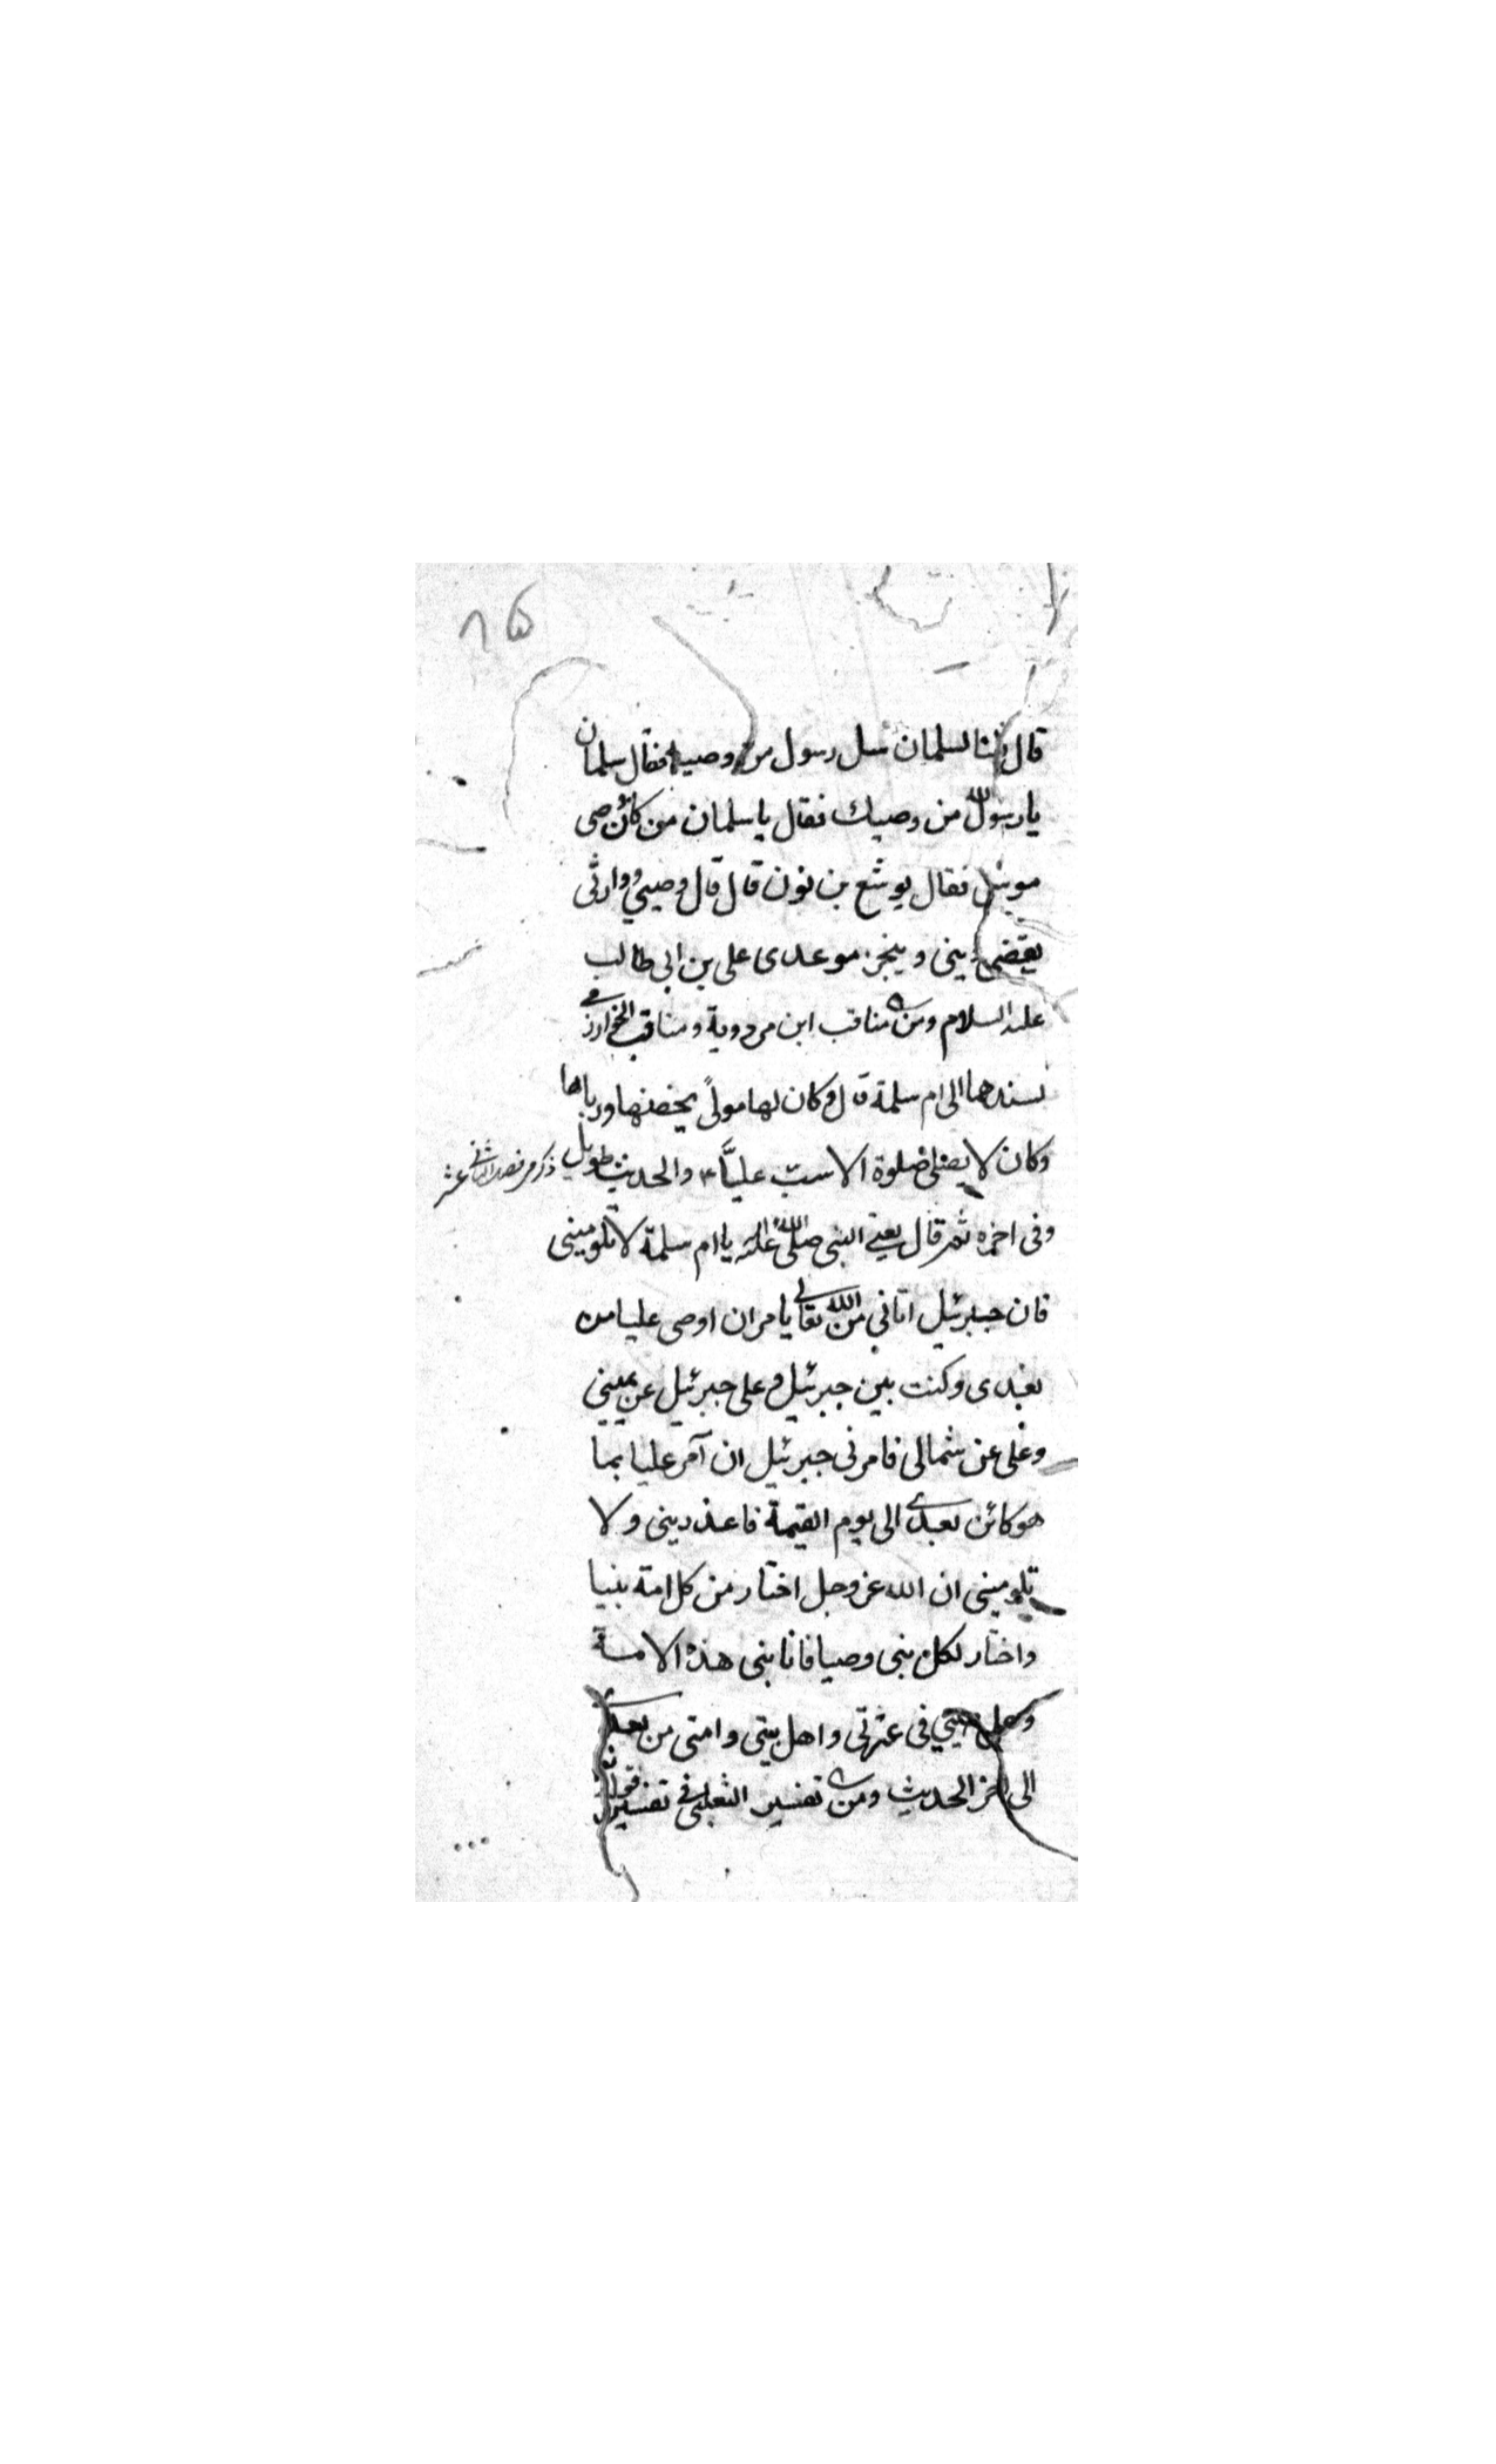 ۸۵
قال قلنا لسلمان سل رسول من وصيه فقال سلمان
يا رسول الله من وصيك فقال يا سلمان من كان وصى
موسى فقال يوشع بن نون قال قال وصيي ووارثى
يقضى دينى وينجز موعدى على بن ابى طالب
عليه السلام ومن مناقب ابن مردوية ومناقب الخوارزمى
بسندهما الى ام سلمة قال وكان لها مولىً يحضنها ورباها
وكان لا يصلى صلوة الا سبّ عليّاً والحديث طويل
ذكر
عشر
وفى اخره ثم قال يعنى النبى صلى الله عليه يا ام سلمة لا تلومينى
فان جبرئيل اتانى من الله تعالى يامر ان اوصى عليا من
بعدى وكنت بين جبرئيل وعلى جبرئيل عن يمينى
وعلى عن شمالى فامرنى جبرئيل ان آمر عليا بما
هو كائن بعدى الى يوم القيمة فاعذرينى ولا
تلومينى ان الله عز وجل اختار من كل امة نبيا
واختار لكل نبى وصيا فانا نبى هذه الامة
وعلى وصيي فى عترتى واهل بيتى وامتى من بعدى
الى اخر الحديث ومن تفسير الثعلبى فى تفسير